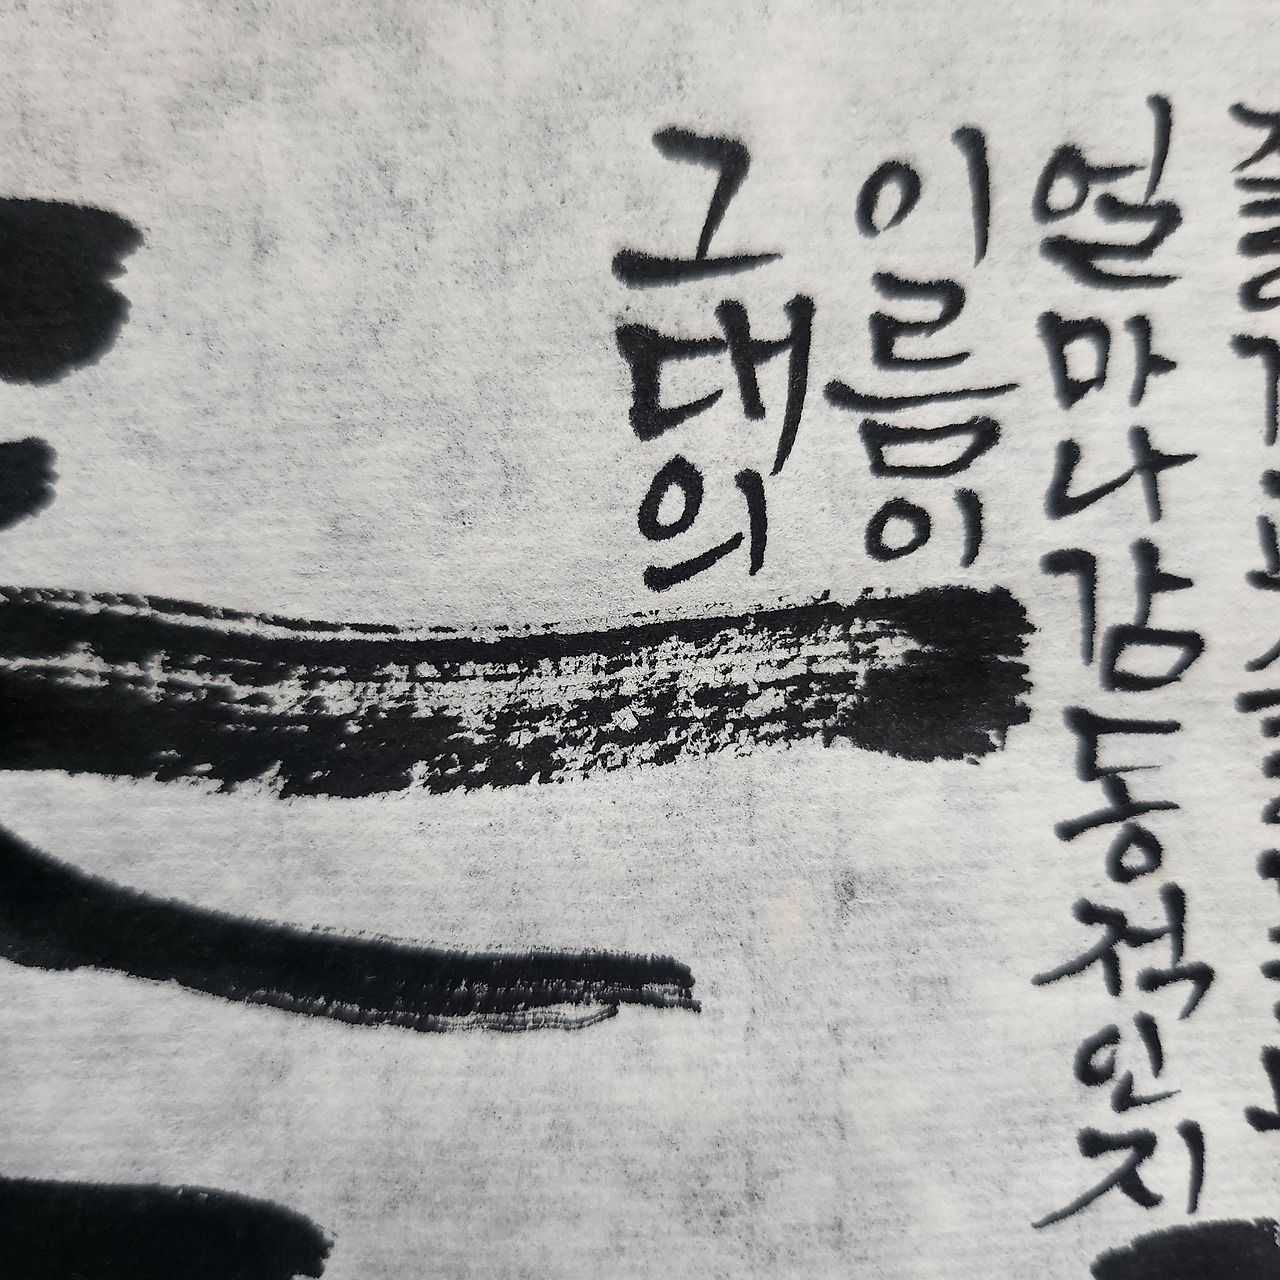 그대의
이름이
얼마나감동적인지